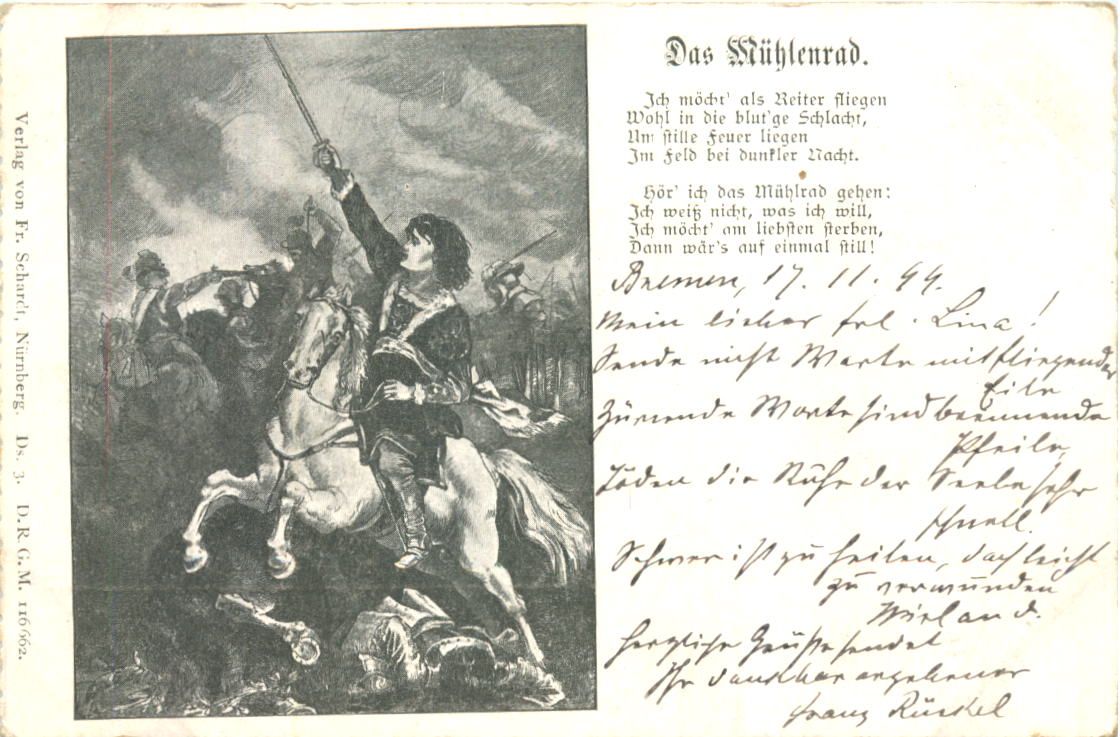 Verlag von Fr. Schardt, Nürnberg. Ds. 3. D. R. G. M. 116662.
Das Mühlenrad.
Ich möcht' als Reiter fliegen
Wohl in die blut'ge Schlacht,
Um stille Feuer liegen
Im Feld bei dunkler Nacht.
Hör' ich das Mühlrad gehen:
Ich weiß nicht, was ich will,
Ich möcht' am liebsten sterben,
Dann wär's auf einmal still!
Bremen, 17. 11. 99.
Mein liebes Frl. Lina!
Sende nicht Worte mit fliegender
Eile
Zürnende Worte sind brennende
Pfeile,
Töden die Ruhe der Seele sehr
schnell.
Schwer ist zu heilen, doch leicht
zu verwunden
Wieland.
Herzliche Grüße sendet
Ihr dankbar ergebener
Franz